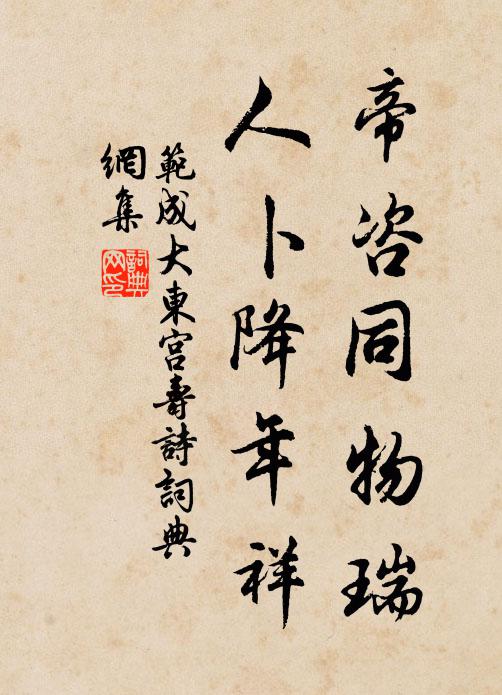 帝咨同物瑞
人卜降年祥
範成大東宮壽詩詞典
網集
詞典
网印